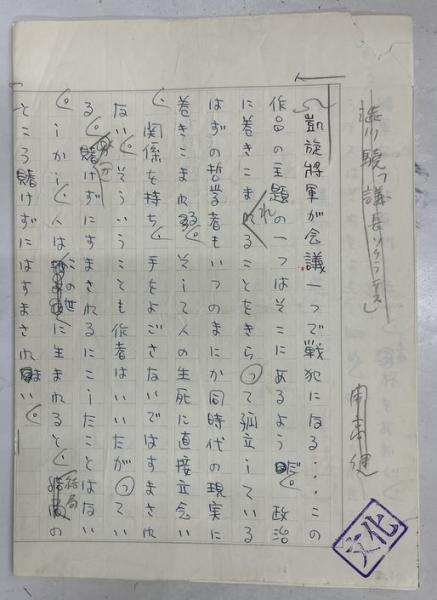 「議長ソクラテス」
開高健
凱旋将軍が会議一つで戦犯になる・・・この
作品の主題の一つはそこにあるようだ。政治
に巻きこまれることをきらって孤立している
はずの哲学者もいつのまにか同時代の現実に
巻きこまれる。そして人の生死に直接立会い
、関係を持ち、手をよごさないではすまされ
ない。そういうことも作者はいいたがってい
る。賭けずにすまされるにこしたことはない
。しかし、人はこの世に生まれると、結局の
ところ賭けずにはすまされない。
文化